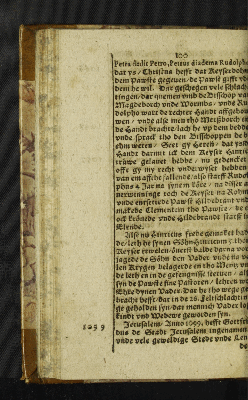 100
Petra dedit Petro, Petrus diadema Rudolpho
dat ys / Christus hefft dat Keyserdohm
dem Pawste gegeven / de Pawst gifft ydt
dem he wil. Dar geschegen vele schlach-
tingen / dar quemen vnd de Bisschop van
Magdeborch vnde Wormbs / vnde Ru-
dolpho wart de rechter Handt affgehow-
wen / vnde alse men tho Merßborch em
de Handt brachte / lach he vp dem bedde
vnde sprack tho den Bisschoppen de by
ehm weren / Seet gy Heren / dat ys de
Handt darmit ick dem Keyser Hinrick
truwe gelavet hebbe / nu gedencket
offt gy my recht vnderwyset hebben
van em affthofallende / also starff Rudol-
phus 4 Jar na synem Köre / na disser
nerwenninge toch de Keyser na Rohm
vnde entsettede Pawst Hildebrandt vnde
makede Clementem tho Pawste / de en
ock krönede vnde Hildebrandt starff im
Elende.
Alse nu Hinricus frede gemaket had-
de / leth he synen Söhn Hinricum 5. thom
Keyser erwelen / överst balde darna vor-
jagede de Söhn den Vader vnde na ve-
len Krygen belagerde en tho Mentz vnde
de leth en in de gefengnisse sterven / alse
syn de Pawste sine Pastoren / lehren wo
Ehre dynen Vader. Dat he tho wege ge-
bracht hefft / dar in de 26. Feltschlachtin-
ge geholden syn / dar mennich Vader loß
Kindt vnd Wedewe geworden syn.
1099
Jerusalem / Anno 1099. hefft Gotfri-
dus de Stadt Jerusalem ingenamen
vnde vele geweldige Stede vnde Len-
de